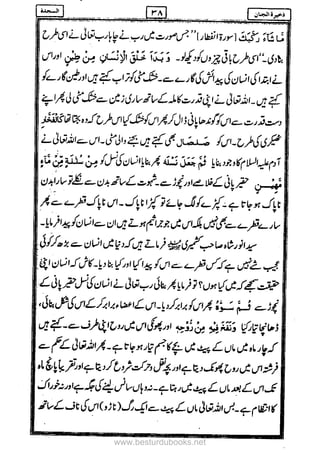 ذخیرۃ الجنان ۳۸ السجدۃ
مَّا شَآءَ رَكَّبَكَ [سورۃ انفطار] "جس صورت میں رب نے چاہا رب تعالیٰ نے اسی طرح
بنا دی۔" اسی طرح باقی چیزوں کو دیکھ لو۔ وَبَدَاَ خَلْقَ الْاِنْسَانِ مِنْ طِيْنٍ اور اس
نے ابتدا کی انسان کی پیدائش کی گارے سے۔ خشک مٹی کو تراب کہتے ہیں اور طین گارے کو
کہتے ہیں۔ اللہ تعالیٰ نے اپنی قدرت کاملہ کے ساتھ ساری زمین سے خشک مٹی لی پھر اپنے
دست قدرت سے اس کو گوندھا پانی ڈال کر پھر اس کو خشک کیا اس طرح کہ وہ بجتا تھا كَالْفَخَّارِ
ٹھیکری کی طرح۔ اس کو صلصال بھی کہتے ہیں بجنے والی مٹی۔ اس سے اللہ تعالیٰ نے
آدم علیہ السلام کا وجود بنایا ثُمَّ جَعَلَ نَسْلَهٗ پھر بنایا انسان کی نسل کو مِنْ سُلٰلَةٍ مِّنْ مَّآءٍ
مَّهِيْنٍ حقیر پانی کے خلاصے اور نچوڑ سے۔ شہوت کے ساتھ بدن سے نکلے تو سارا بدن
ناپاک ہو جاتا ہے۔ کپڑے کو لگ جائے تو کپڑا ناپاک۔ اس ناپاک قطرے سے پھر
سارے قطرے سے بھی نہیں بلکہ اس میں جو جراثیم ہوتے ہیں ان سے انسان کو پیدا فرمایا۔
سید انور شاہ صاحب کشمیری فرماتے ہیں کہ دنیا میں انسان سے بڑھ کر کوئی
عجیب شے نہیں ہے کہ کس قطرے سے اس کو پیدا کیا اور کیا بنا دیا۔ کاش کہ انسان اپنی
حقیقت سمجھے کہ میں کیا ہوں؟ تو فرمایا پھر بنائی رب تعالیٰ نے انسان کی نسل حقیر پانی کے
نچوڑ سے ثُمَّ سَوّٰىهُ پھر اس کو برابر کر دیا۔ اس کے اعضاء برابر کر کے اس کی شکل بنائی،
ڈھانچا تیار کیا وَنَفَخَ فِيْهِ مِنْ رُّوْحِهٖ اور پھونکی اس میں روح اپنی طرف سے۔ کہتے ہیں
کہ چار ماہ میں ماں کے پیٹ میں بچے کا جسم تیار ہو جاتا ہے۔ پھر اللہ تعالیٰ کے حکم سے
فرشتہ اس میں روح پھونک دیتا ہے اور بچہ نقل و حرکت شروع کر دیتا ہے اور تقریباً پانچ ماہ
تک اس کے بعد ماں کے پیٹ میں رہتا ہے۔ نہ وہاں سانس لینے کی جگہ ہے اور نہ خوراک
کا انتظام ہے۔ بس اللہ تعالیٰ ماں کے پیٹ سے ایک رگ (ناڑو) اس کی ناف کے ساتھ
www.besturdubooks.net